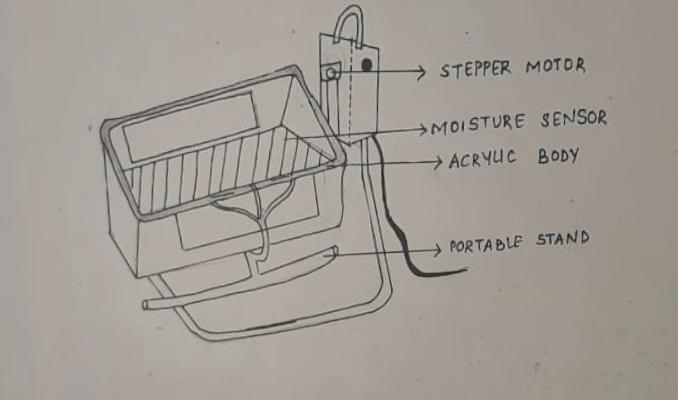 STEPPER MOTOR
MOISTURE SENSOR
ACRYLIC BODY
PORTABLE STAND